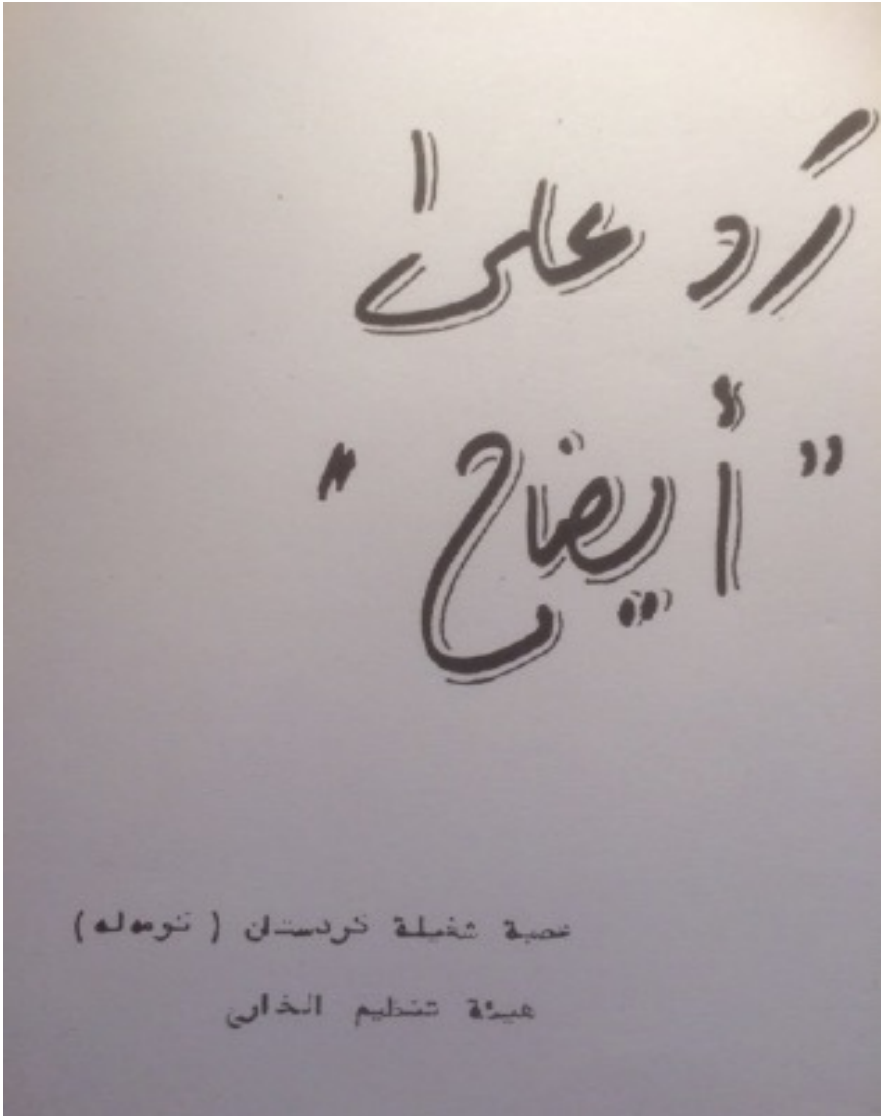 رَد علىٰ
"أيضاح"
عصبة شغيلة كردستان ( كومه له )
هيئة تنظيم الخارج